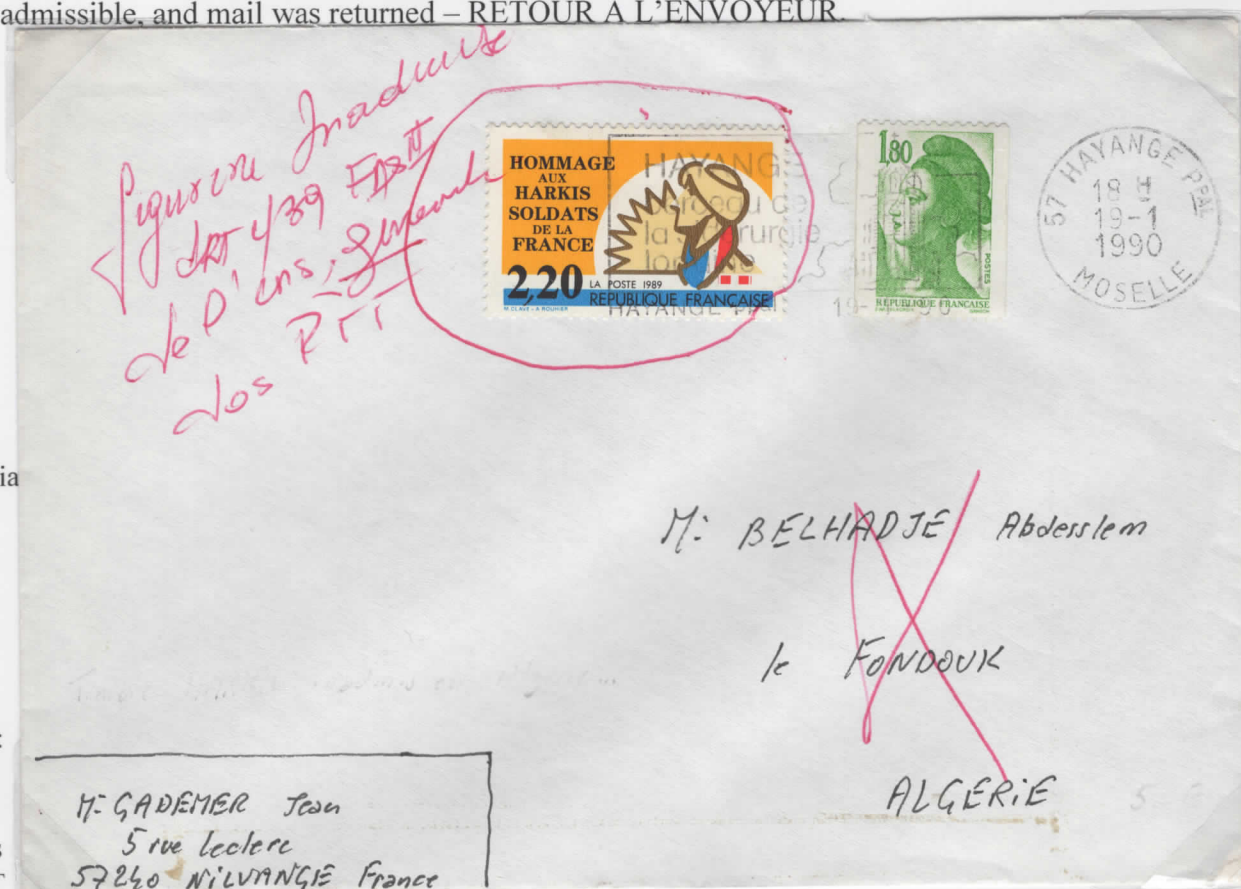 admissible, and mail was returned – RETOUR A L'ENVOYEUR.
figurine Inadmise
de l'ins, generale
des PTT
HOMMAGE
AUX
HARKIS
SOLDATS
DE LA
FRANCE
2,20
LA POSTE 1989
REPUBLIQUE FRANÇAISE
HAYANGE
berceau de
la sidérurgie
lorraine
HAYANGE PPAL
1,80
POSTES
REPUBLIQUE FRANÇAISE
57 HAYANGE PPAL
18 H
19-1
1990
MOSELLE
ia
M: BELHADJE Abdesslem
le FONDOUK
ALGERIE
M: GADEMER Jean
5 rue leclerc
57240 NILVANGE France